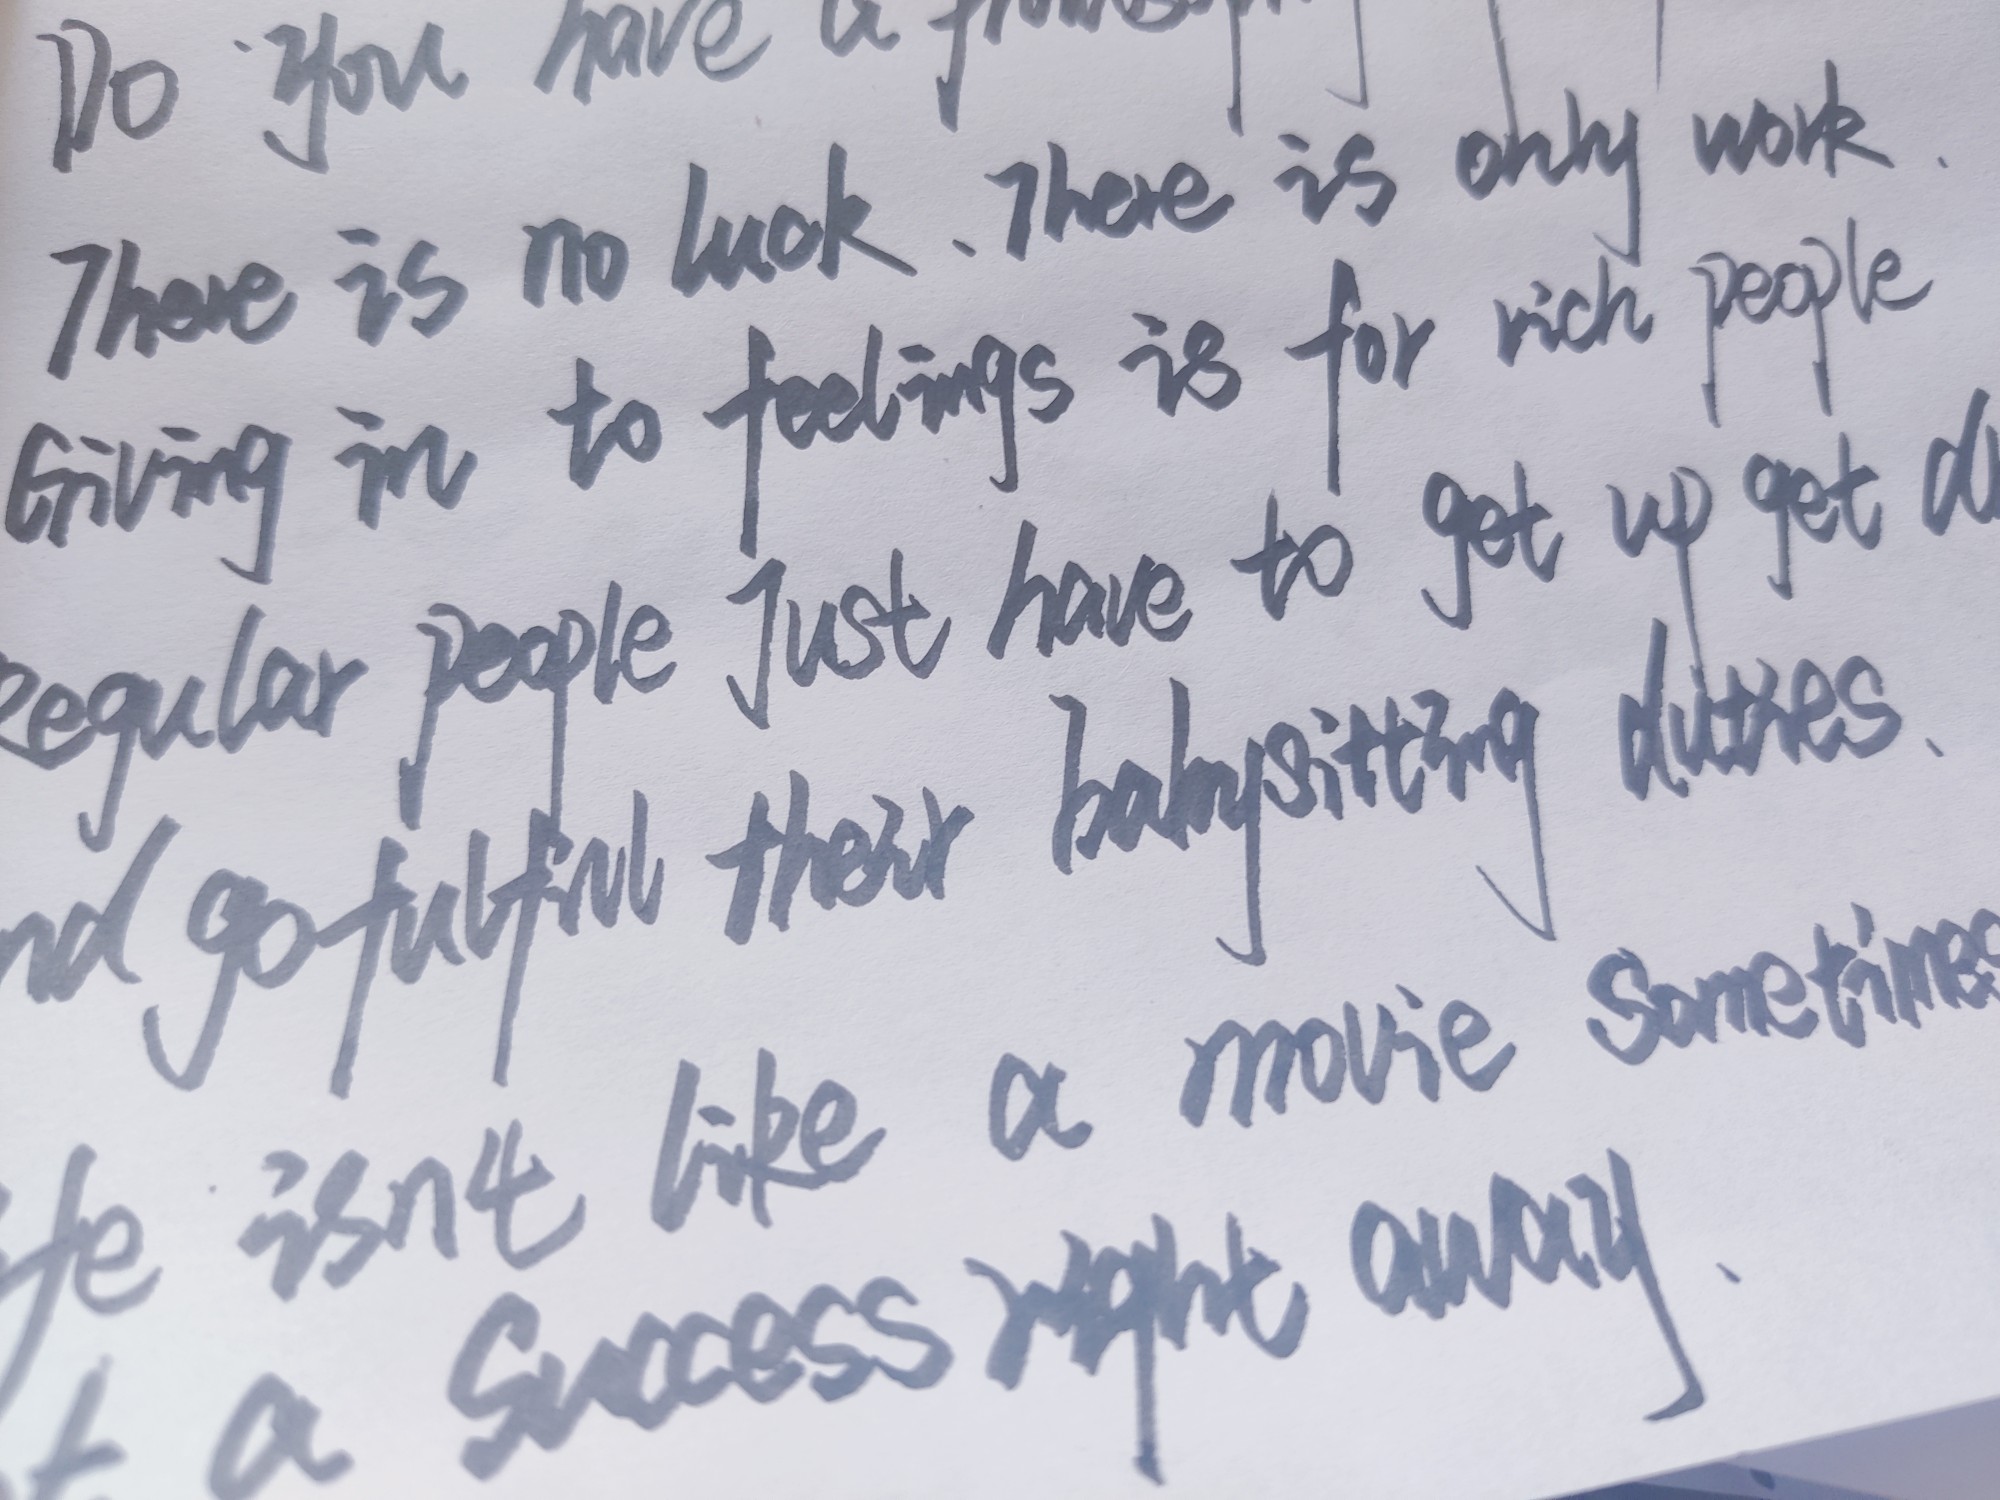 Do you have a
There is no luck. There is only work.
Giving in to feelings is for rich people
Regular people Just have to get up get
go fulfill their babysitting duties.
isn't like a movie sometimes
a success right away.